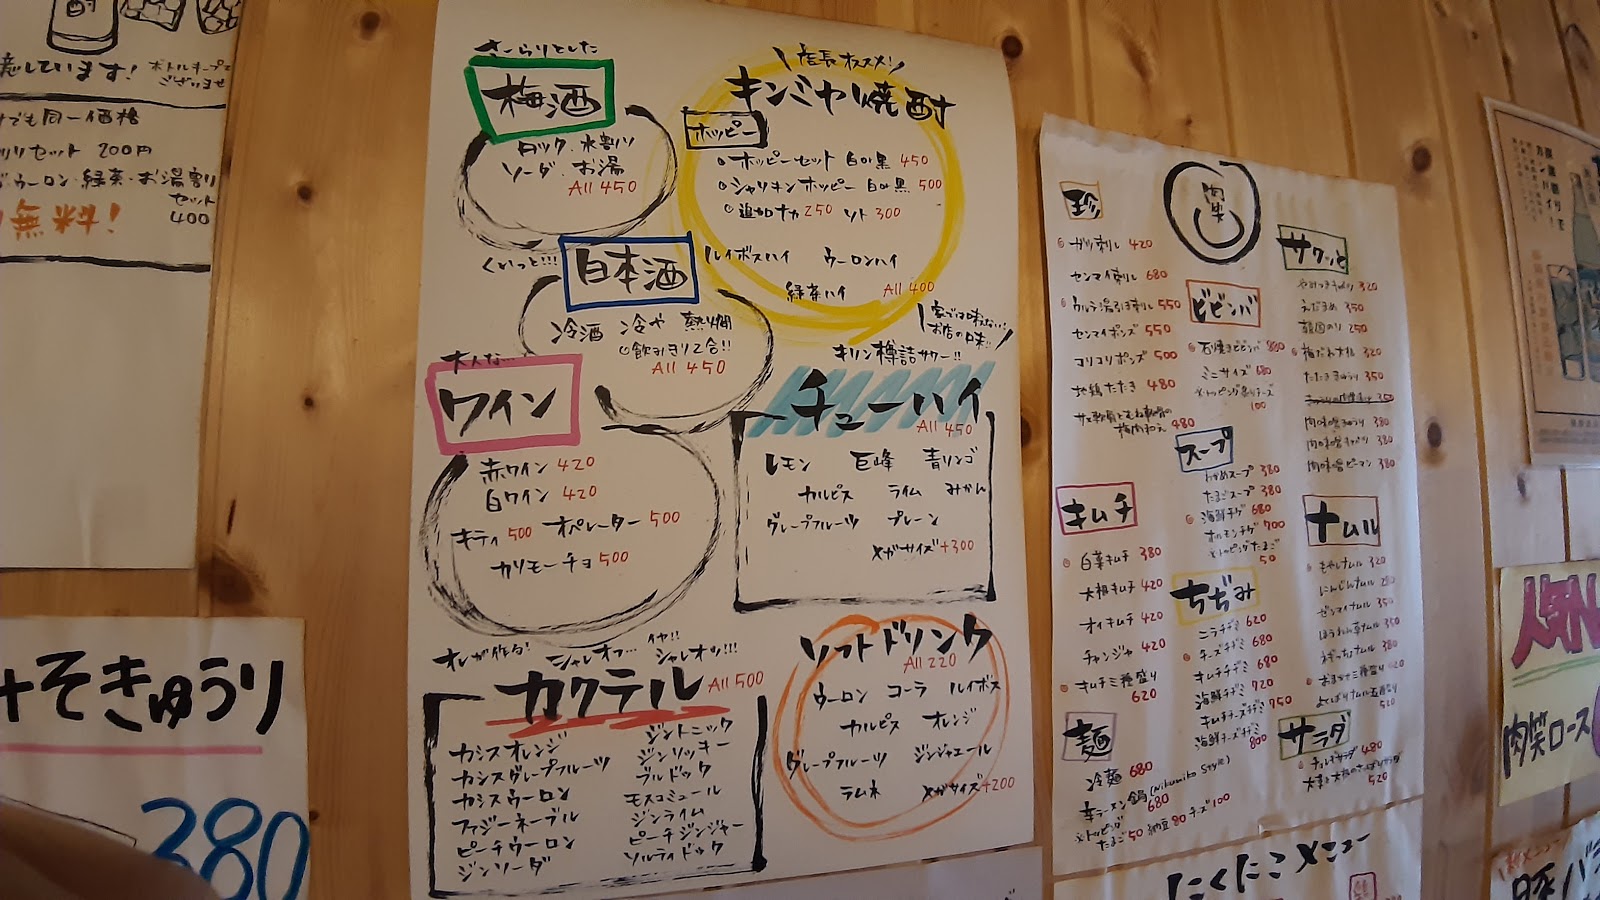 酎
意しています!
ボトルキープで
ございませ
でも同一価格
セット 200円
ウーロン・緑茶・お湯割り
セット
400
無料!
そきゅうり
380
さらりとした
梅酒
ロック・水割り
ソーダ・お湯
All 450
店長オススメ!
キンミヤ焼酎
ホッピー
ホッピーセット 白or黒 450
シャリキンホッピー 白or黒 500
追加ナカ 250 ソト 300
ルイボスハイ ウーロンハイ
緑茶ハイ All 400
ぐいっと!!!
日本酒
冷酒 冷や 熱燗
飲みきり2合!!
All 450
大人な…
ワイン
赤ワイン 420
白ワイン 420
キティ 500 オペレーター 500
カリモーチョ 500
家では味わえない!
お店の味!!
キリン樽詰サワー!!
チューハイ
All 450
レモン 巨峰 青リンゴ
カルピス ライム みかん
グレープフルーツ プレーン
メガサイズ+300
オレが作る!
シャレオフ… イヤ!! シャレオツ!!!
カクテル All 500
カシスオレンジ
カシスグレープフルーツ
カシスウーロン
ファジーネーブル
ピーチウーロン
ジンソーダ
ジントニック
ジンリッキー
ブルドック
モスコミュール
ジンライム
ピーチジンジャー
ソルティドック
ソフトドリンク
All 220
ウーロン コーラ ルイボス
カルピス オレンジ
グレープフルーツ ジンジャエール
ラムネ メガサイズ+200
肉笑
珍
ガツ刺し 420
センマイ刺し 680
ウルテ湯引き刺し 550
センマイポンズ 550
コリコリポンズ 500
地鶏たたき 480
梅肉和え 480
キムチ
白菜キムチ 380
大根キムチ 420
オイキムチ 420
チャンジャ 420
キムチ三種盛り
620
麺
冷麺 680
辛ラーメン鍋 (Nikumiko Style)
680
※トッピング
たまご 50 納豆 80 チーズ 100
ビビンバ
石焼きビビンバ 880
ミニサイズ 680
※トッピング炙りチーズ
100
スープ
わかめスープ 380
たまごスープ 380
海鮮チゲ 680
ホルモンチゲ 700
※トッピングたまご
50
ちぢみ
ニラチヂミ 620
チーズチヂミ 680
キムチチヂミ 680
海鮮チヂミ 720
キムチチーズチヂミ 750
海鮮チーズチヂミ
800
サクッと
やみつききゅうり 320
えだまめ 350
韓国のり 250
梅だれ大根 320
たたききゅうり 350
肉味噌きゅうり 380
肉味噌キャベツ 380
肉味噌ピーマン 380
ナムル
もやしナムル 320
にんじんナムル 280
ゼンマイナムル 350
ほうれん草ナムル 350
ねぎっちょナムル 380
おまかせ三種盛り
サラダ
チョレギサラダ 480
520
にくにこメニュー
人気No
肉笑ロース
新メニュー
豚バ